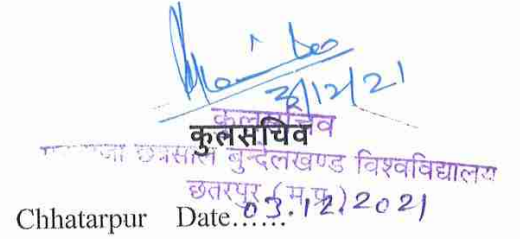 3/12/21
कुलसचिव
कुलसचिव
छत्रसाल बुन्देलखण्ड विश्वविद्यालय
छतरपुर (म.प्र.)
Chhatarpur Date...... 03.12.2021